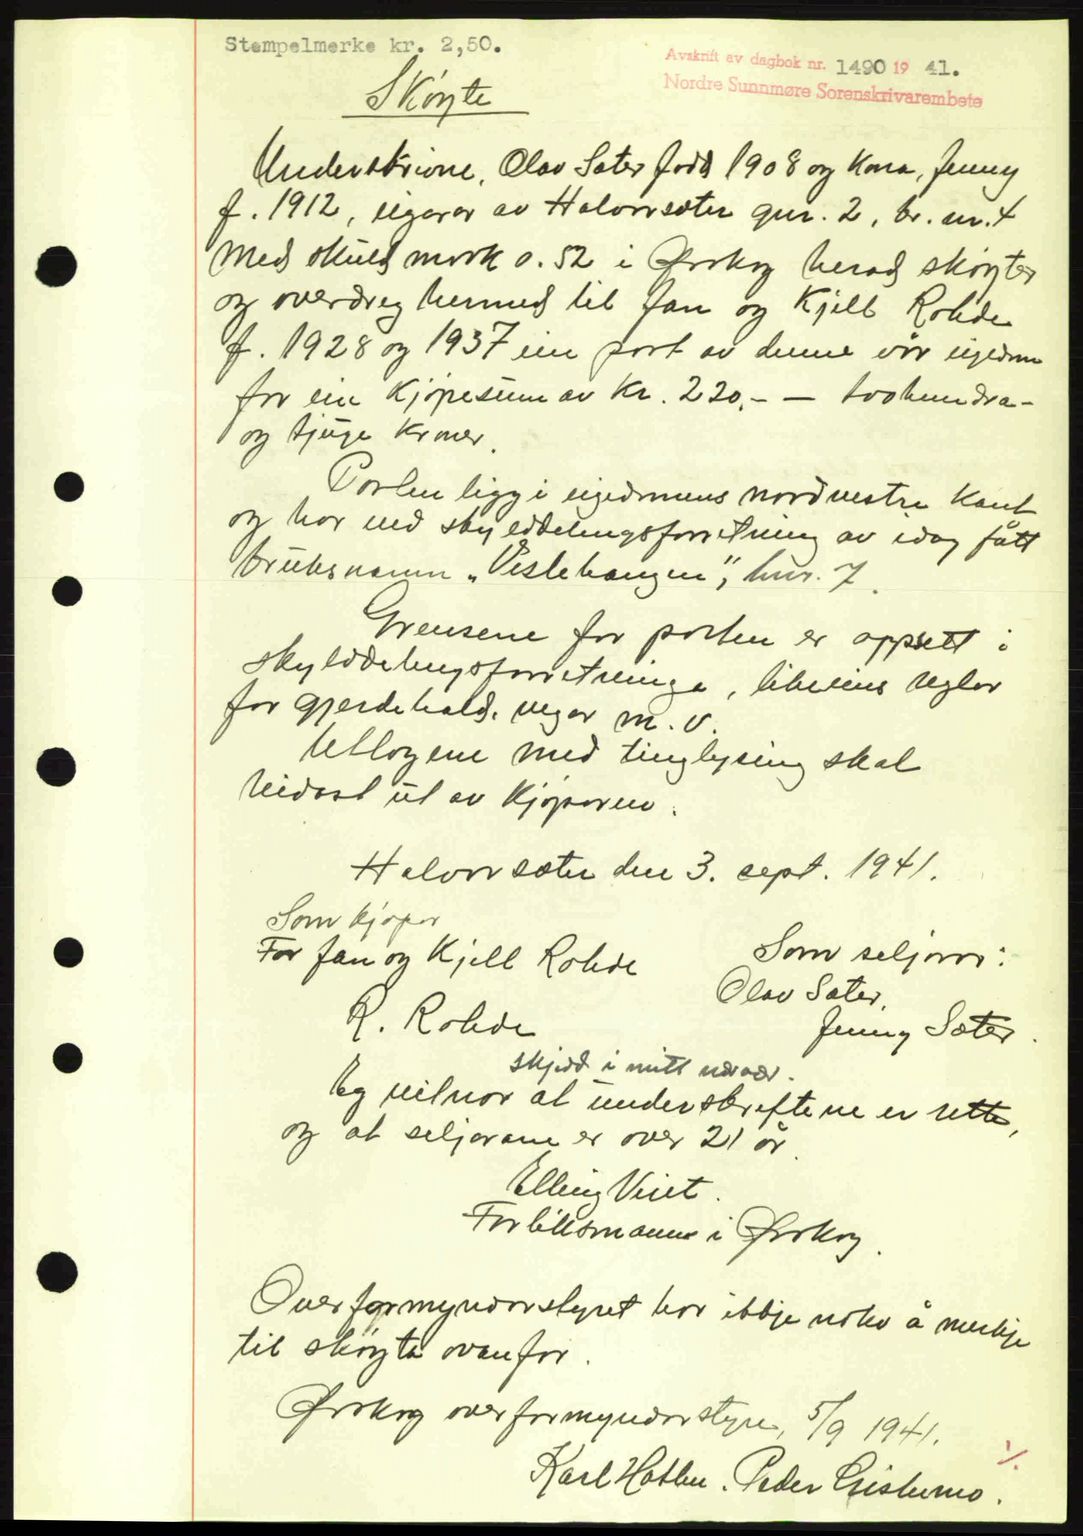 Stempelmerke kr. 2,50.
Avskrift av dagbok nr. 1490 19 41.
Nordre Sunnmøre Sorenskrivarembete
Skøyte
Underskrivne, Olav Sæter født 1908 og kona, Jenny
f. 1912, eigarar av Halvorsæter gnr. 2, br. nr. 4
med skuld mork 0.52 i Ørskog herad skøyter
og overdreg hermed til Jan og Kjell Rohde
f. 1928 og 1937 ein part av denne vår eigedom
for ein kjøpesum av kr. 220.- — tvohundra-
og tjuge kroner.
Parten ligg i eigedomens nordvestre kant
og har ved skylddelingsforretning av idag fått
bruksnamn „Vestehaugen", bnr. 7.
Grensene for parten er oppsett i
skylddelingsforretninga, likeeins reglar
for gjerdehald, vegar m. v.
Utlogene med tinglysing skal
reidast ut av kjøparen.
Halvorsæter den 3. sept. 1941.
Som kjøpar
For Jan og Kjell Rohde
Som seljarar:
Olav Sæter.
R. Rohde
Jenny Sæter.
skjedd i mitt nærvær.
Eg vitnar at underskriftene er rette,
og at seljarane er over 21 år.
Elling Viset.
Forliksmann i Ørskog.
Overformyndarstyret har ikkje noko å merkje
til skøyta ovanfor.
Ørskog overformyndarstyre, 5/9 1941.
Karl Hatlen. Peder Gislemo.